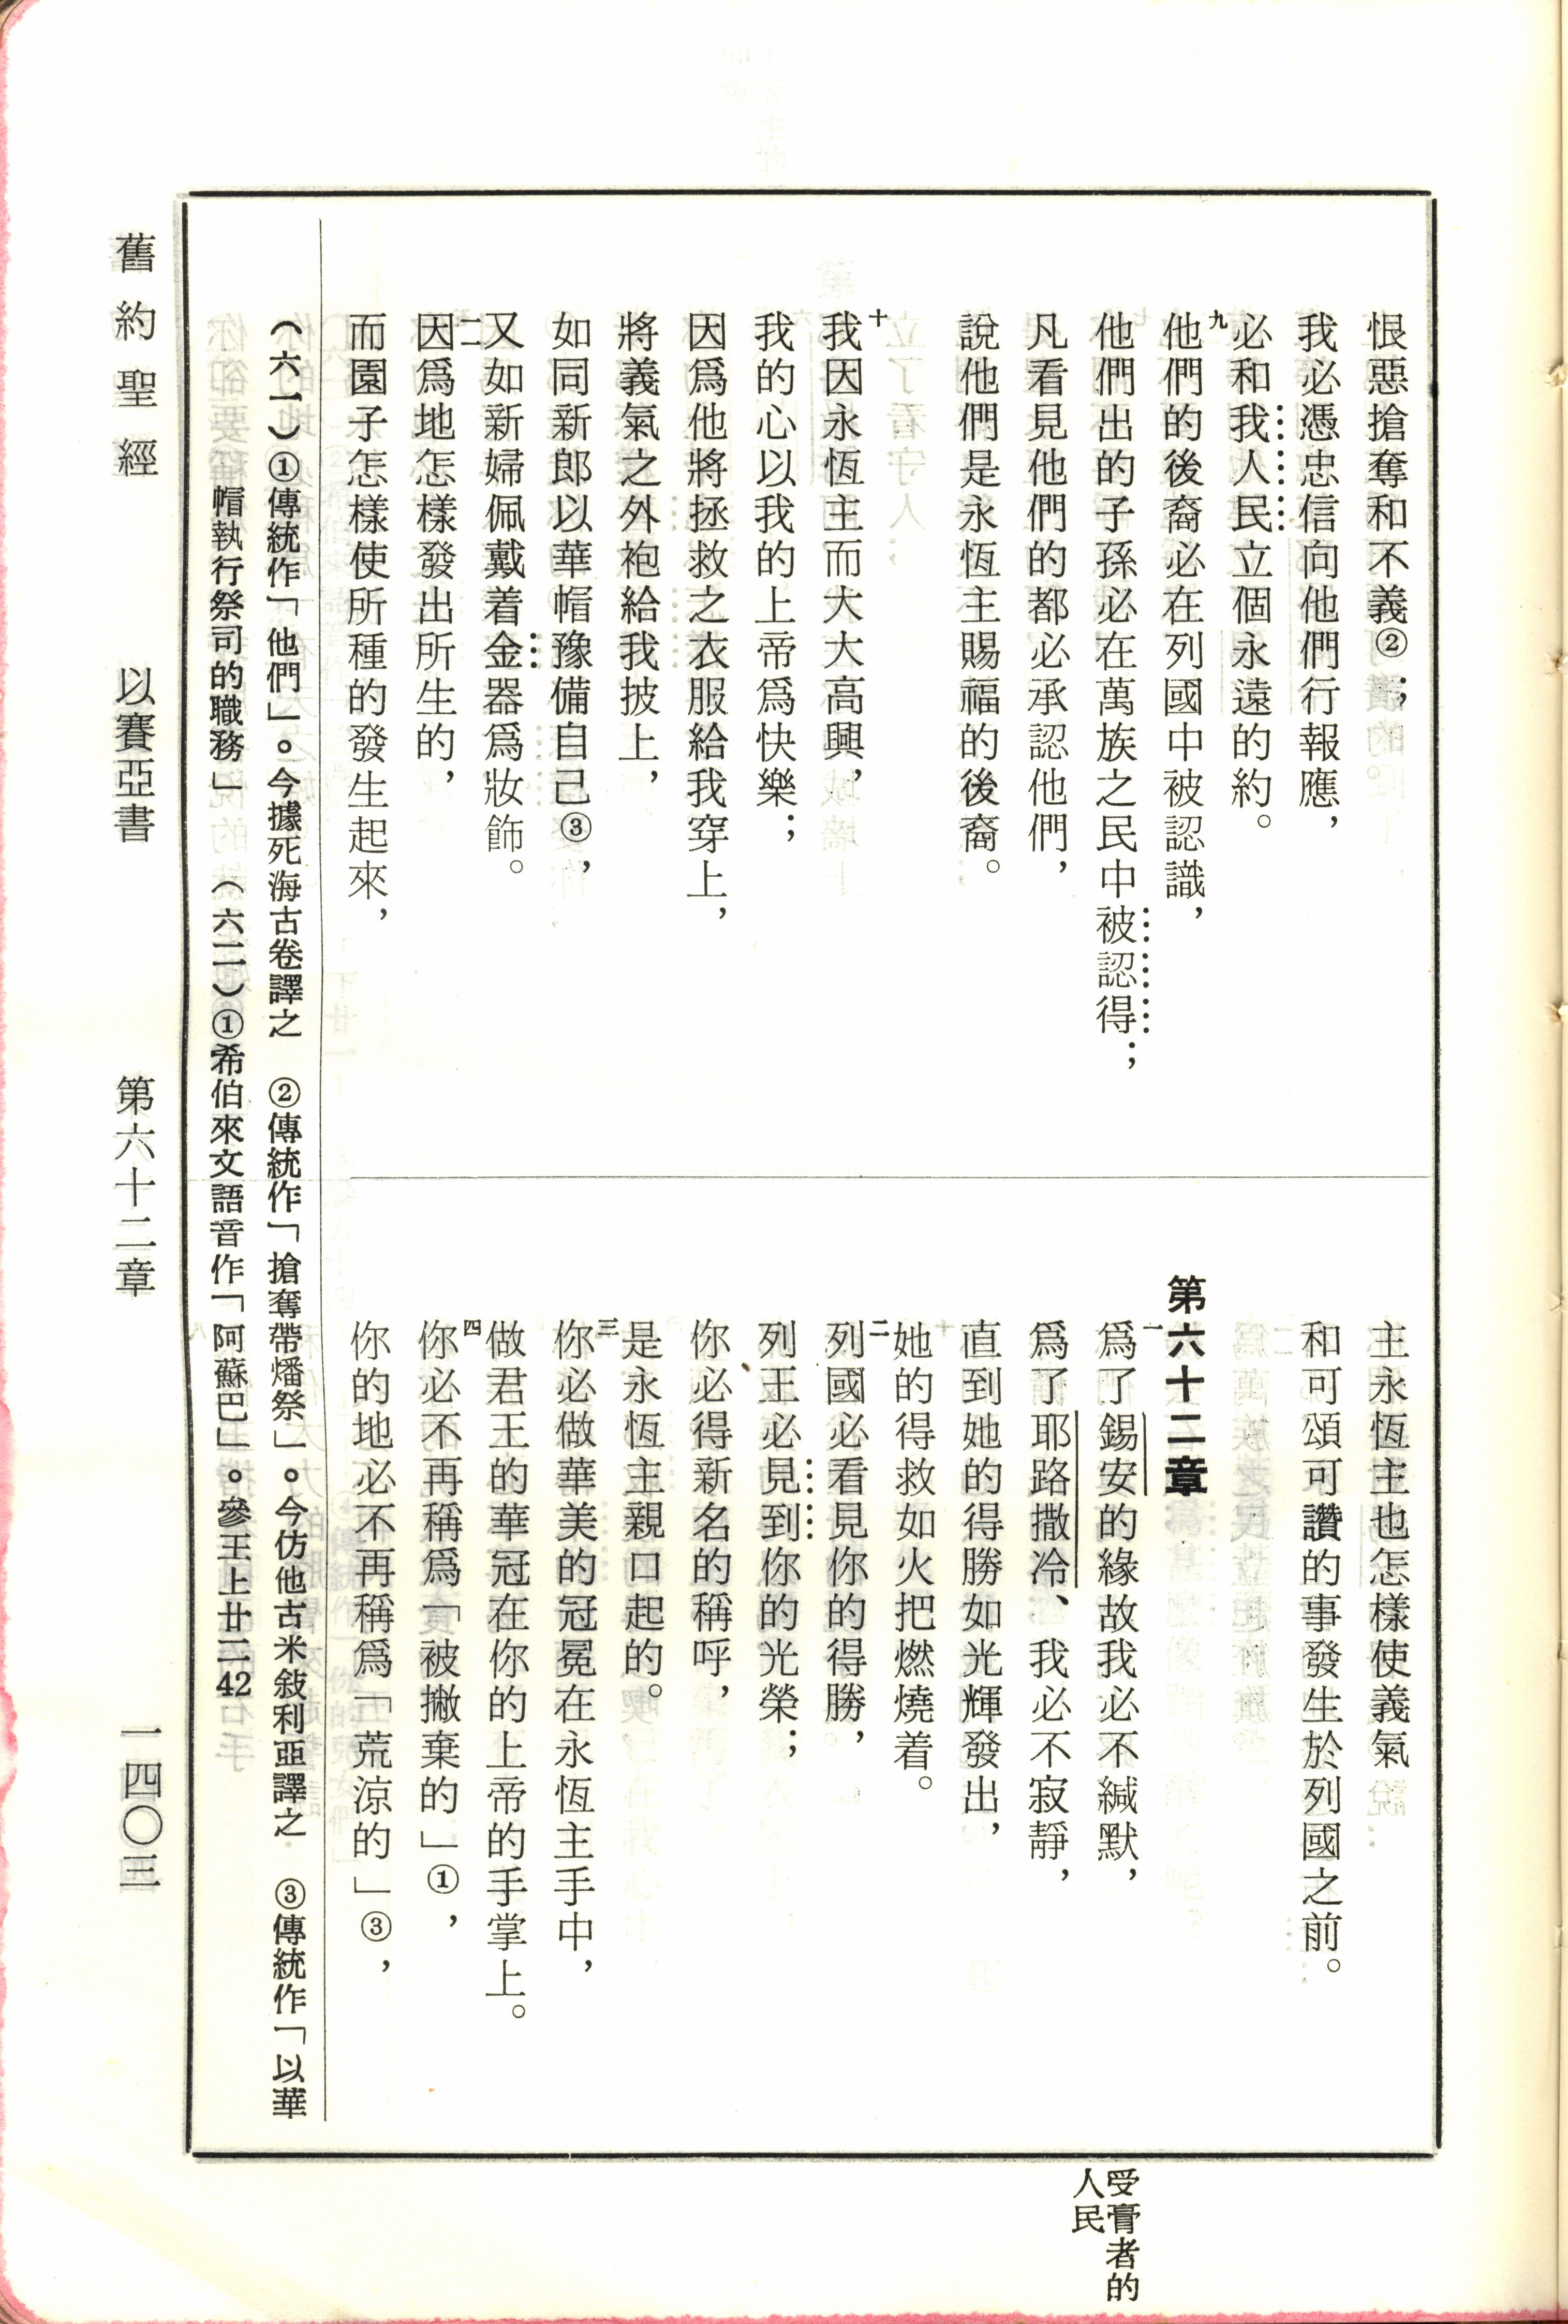 恨惡搶奪和不義②；
我必憑忠信向他們行報應，
必和我人民立個永遠的約。
九他們的後裔必在列國中被認識，
他們出的子孫必在萬族之民中被認得；
凡看見他們的都必承認他們，
說他們是永恆主賜福的後裔。
十我因永恆主而大大高興，
我的心以我的上帝爲快樂；
因爲他將拯救之衣服給我穿上，
將義氣之外袍給我披上，
如同新郎以華帽豫備自己③，
又如新婦佩戴着金器爲妝飾。
二因爲地怎樣發出所生的，
而園子怎樣使所種的發生起來，
主永恆主也怎樣使義氣
和可頌可讚的事發生於列國之前。
第六十二章
一爲了錫安的緣故我必不緘默，
爲了耶路撒冷、我必不寂靜，
直到她的得勝如光輝發出，
她的得救如火把燃燒着。
二列國必看見你的得勝，
列王必見到你的光榮；
你必得新名的稱呼，
是永恆主親口起的。
三你必做華美的冠冕在永恆主手中，
做君王的華冠在你的上帝的手掌上。
四你必不再稱爲「被撇棄的」①，
你的地必不再稱爲「荒涼的」③，
（六一）①傳統作「他們」。今據死海古卷譯之　②傳統作「搶奪帶燔祭」。今仿他古米敍利亞譯之　③傳統作「以華
帽執行祭司的職務」　（六二）①希伯來文語音作「阿蘇巴」。參王上廿二42
舊約聖經　以賽亞書　第六十二章　一四〇三
受膏者的
人民